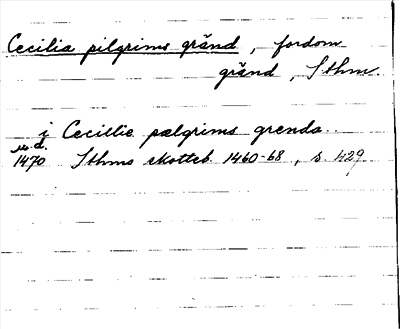 Cecilia pilgrims gränd, fordom
gränd, Sthm.
i Cecillie pælgrims grenda..
u.d.
1470 Sthms skotteb. 1460-68, s. 429